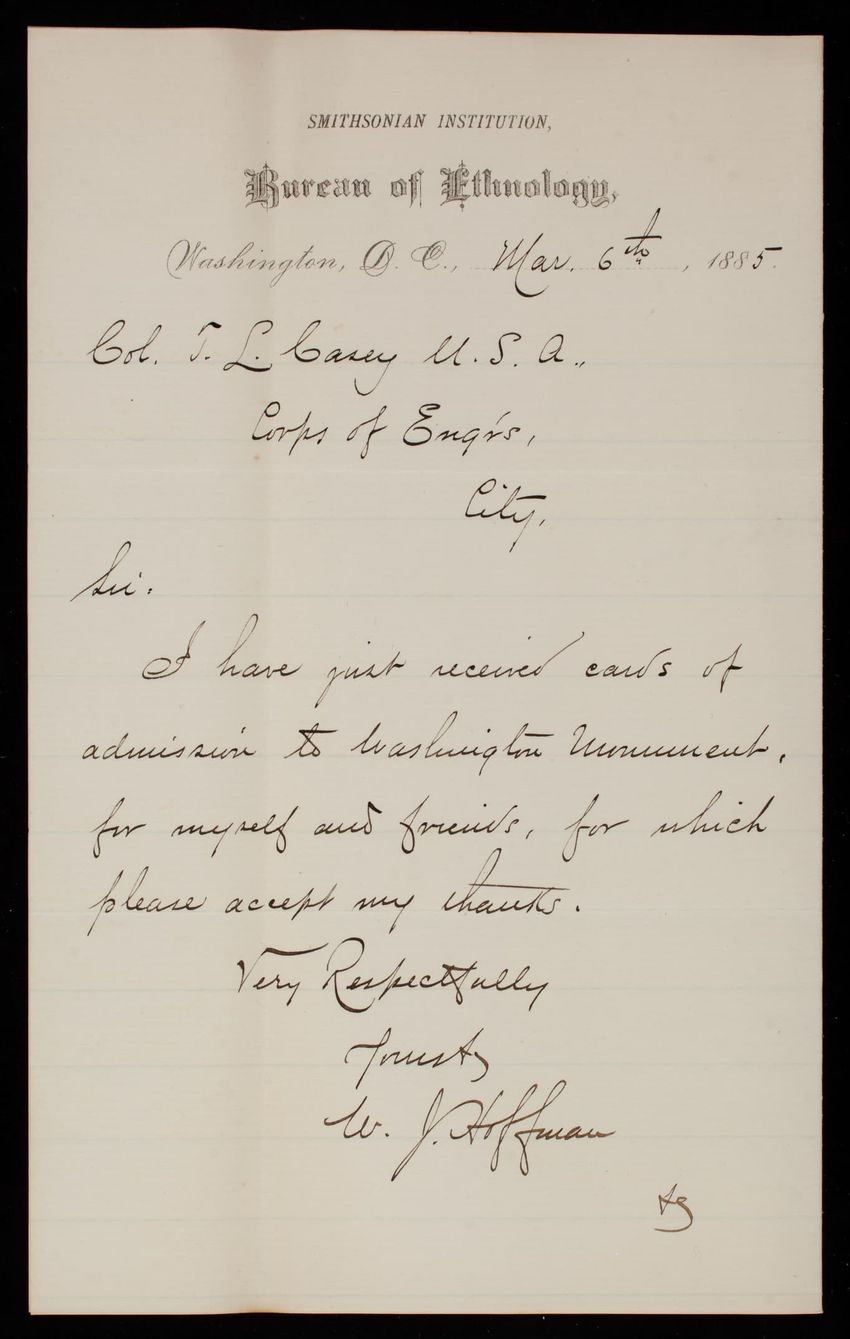 SMITHSONIAN INSTITUTION,
Bureau of Ethnology,
Washington, D. C., Mar. 6th, 1885.
Col. T. L. Casey U. S. A.,
Corps of Engr's,
City,
Sir:
I have just received cards of
admission to Washington Monument,
for myself and friends, for which
please accept my thanks.
Very Respectfully
Yours &
W. J. Hoffman